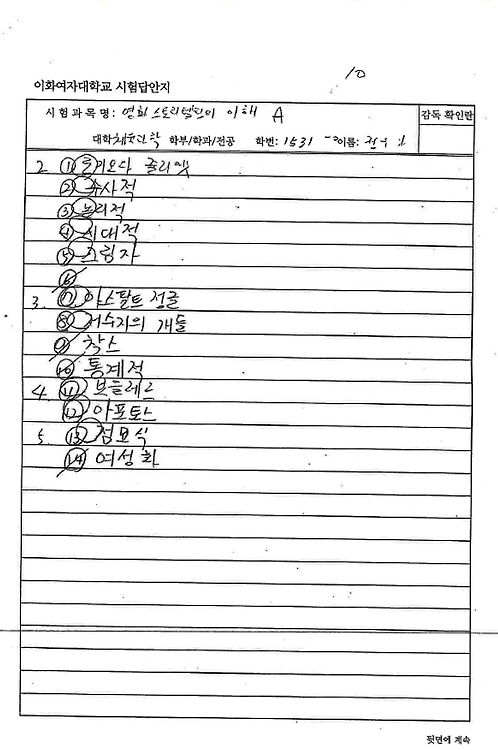 10
이화여자대학교 시험답안지
시험과목명: 영화스토리텔링의 이해 A 감독 확인란
대학 학부/학과/전공 학번: 1531 이름:
2 ① 줄리엣
② 수사적
③ 논리적
④ 시대적
⑤ 그림자
⑥
3. ⑦ 아스팔트 정글
⑧ 저수지의 개들
⑨ 찰스
⑩ 통계적
4 ⑪ 보들레르
⑫ 아포토스
5. ⑬ 점묘식
⑭ 여성화
뒷면에 계속